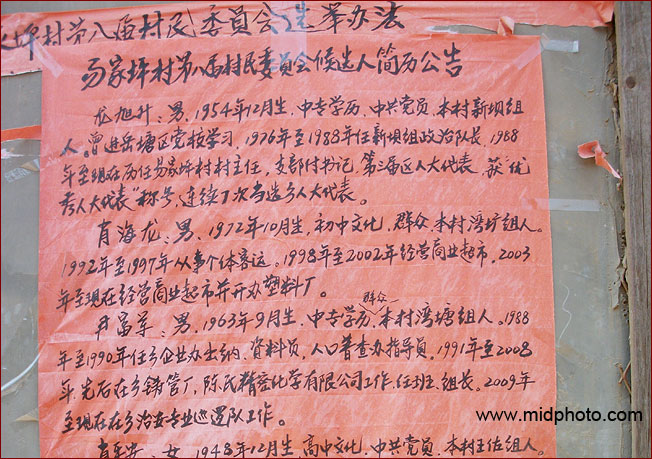 坪村第八届村民委员会选举办法
易家坪村第八届村民委员会候选人简历公告
龙旭升：男，1954年12月生，中专学历，中共党员，本村新坝组
人。曾进岳塘区党校学习，1976年至1988年任新坝组政治队长，1988
年至现在历任易家坪村村主任，支部付书记，第三届区人大代表，获“优
秀人大代表”称号，连续7次当选乡人大代表。
肖海龙：男，1972年10月生，初中文化，群众，本村湾坑组人。
1992年至1997年从事个体客运。1998年至2002年经营商业超市，2003
年至现在经营商业超市并开办塑料厂。
尹富军：男，1963年9月生，中专学历，群众 本村湾塘组人。1988
年至1990年任乡企业办出纳、资料员，人口普查办指导员，1991年至2008
年，先后在乡铸管厂，陈氏精密化学有限公司工作，任班、组长。2009年
至现在在乡治安专业巡逻队工作。
女，1948年12月生，高中文化，中共党员，本村王佐组人。
www.midphoto.com